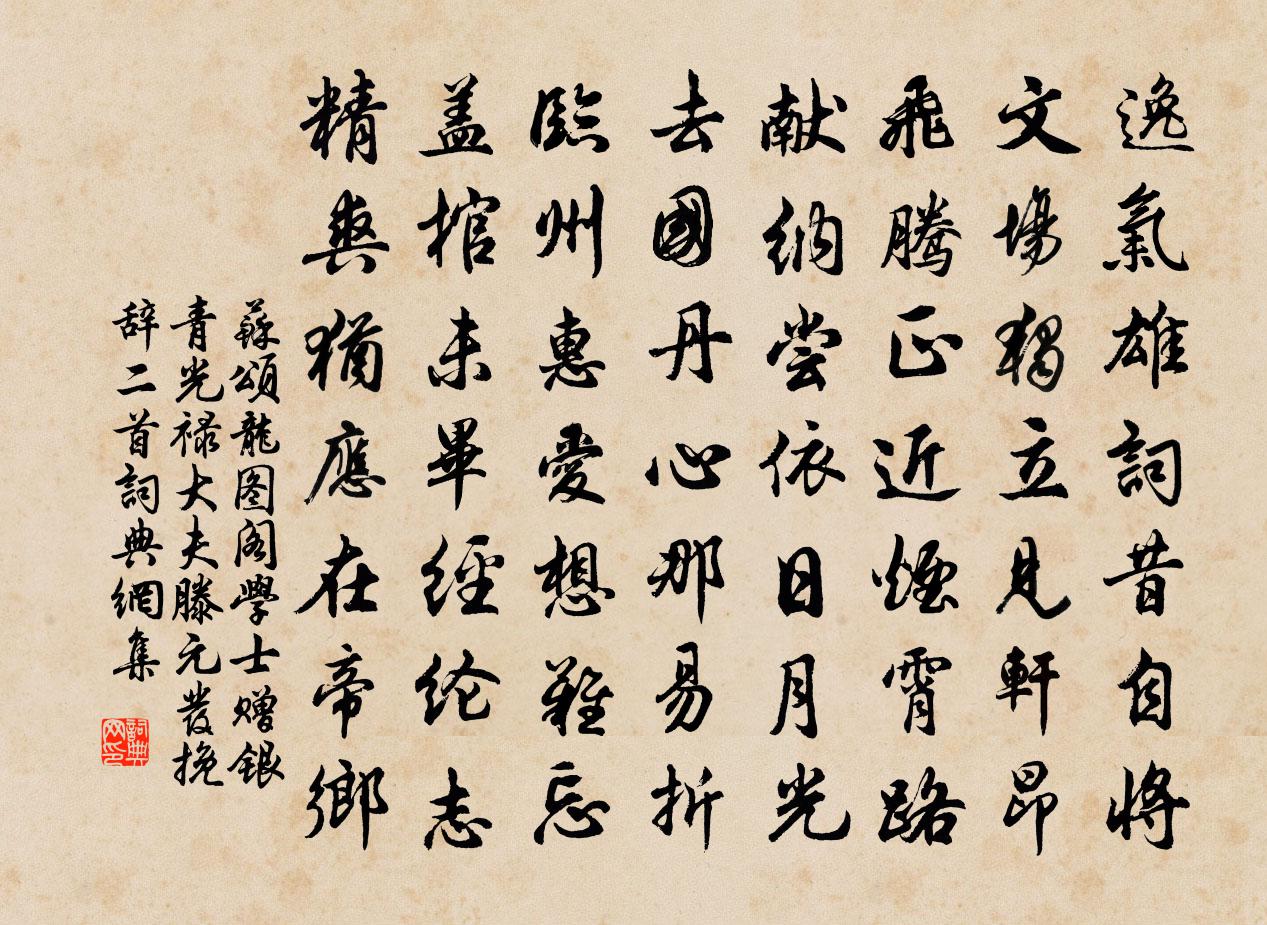 逸氣雄詞昔自將
文場獨立見軒昂
飛騰正近煙霄路
献納尝依日月光
去國丹心那易折
臨州惠愛想難忘
盖棺未畢經纶志
精爽猶應在帝鄉
蘇頌龍图阁學士赠银
青光禄大夫滕元發挽
辞二首詞典網集
詞典网印